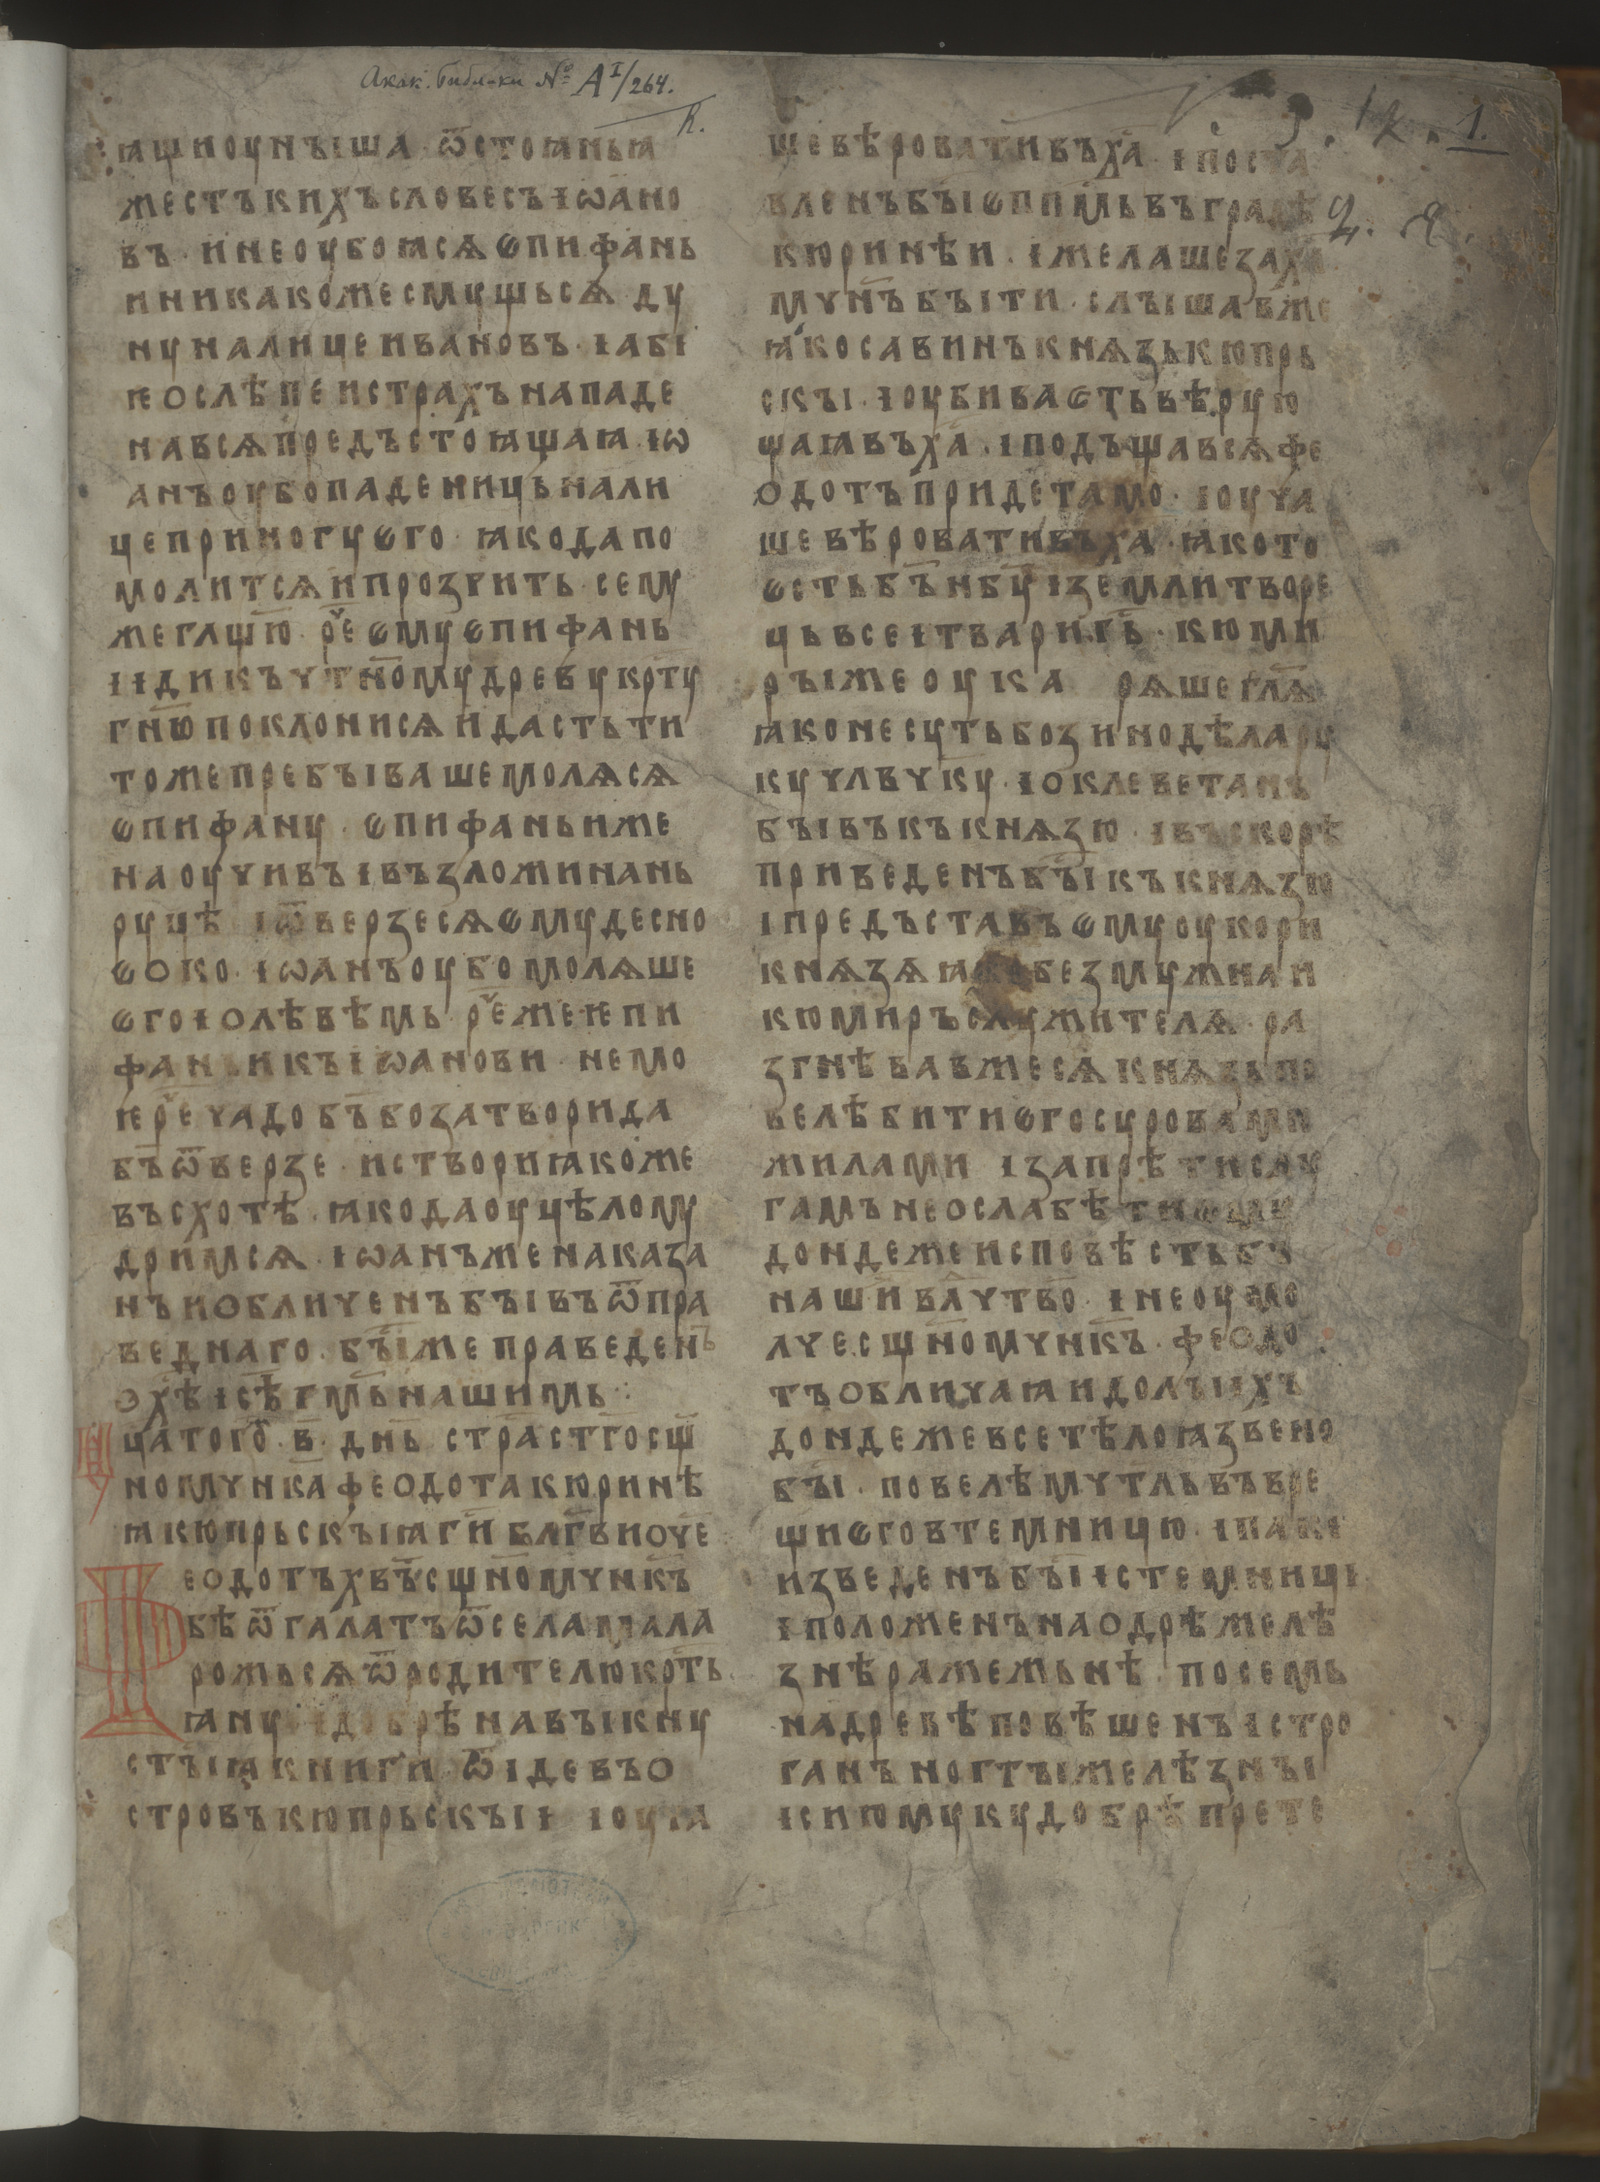 Акад. Библ-ки № А I/264.
1.
ꙗщиоунъıша ѿстоꙗньꙗ
жестъкихъсловесъ ıѡано
въ · инеоубоꙗсѧ єпифань
иникакожесмущьсѧ ду
нуналицеивановъ · ıабı
ѥослѣпе истрахънападе
навсѧпредъстоꙗщаꙗ · ıѡ
анъоубопаденицьнали
цепримогуєго · ꙗкодапо
молитсѧипрозрить · сему
жеглщ҃ю · рⷱ҇еємуєпифань
ııдикъчтн҃омудревукрⷭ҇ту
гн҃юпоклонисѧидастьти
тожепребъıвашемолѧсѧ
єпифану · єпифаньиже
наоучивъıвъзложинань
руцѣ ıѿверзесѧємудесно
єоко · ıѡанъоубомолѧше
єгоıолѣвѣмь · рⷱ҇ежеѥпи
фаньикъıѡанови · немо
ѥрⷱ҇ечадобъ҃бозатворида
бъ҃ѿверзе · истворииꙗкоже
въсхотѣ · ꙗкодаоуцѣлому
дримсѧ · ıѡанъженаказа
нъиобличенъбъıвъѿпра
веднаго · бъıⷭ҇жеправеденъ
охѣ҃ıсѣ҃гм҃ьнашимь :
цатогоⷤ · в҃ · дн҃ь страстг҃осщ҃
номчнкафеодотакюринѣ
ꙗкюпрьскъıꙗги҃блг҃виоч҃е
еодотъхв҃ъсщ҃номчнкъ
бѣѿгалатъѿселамала
рожьсѧѿродителюкрⷭ҇ть
ꙗну ıдобрѣнавъıкну
ст҃ъıꙗкниги · ѿıдевъо
стровъкюпрьскъıı ıоуча
шевѣровативъха҃ · ıпоста
вленъбъıⷭ҇єпп҃мьвъградѣ
кюринѣи · ıжелашезаха҃
мчн҃ъбъıти · слъıшавже
ꙗкосавинъкнѧзькюпрь
скъı · ıоубиваєтьвѣрую
щаꙗвъха҃ · ıподъщавсѧфе
одотъпридетамо · ıоуча
шевѣровативъха҃ · ꙗкото
єстьбъ҃нб҃уıземлитворе
цьвсеıтваригь҃ · кюми
ръıжеоука рѧшегл҃ѧ
ꙗконесутьбозинодѣлару
кучлвчку · ıоклеветанъ
бъıвъкъкнѧзю · ıвъскорѣ
приведенъбъıⷭ҇къкнѧзю
ıпредъставъємуоукори
кнѧзѧꙗкобезмужнаи
кюмиръслужителѧ · ра
згнѣвавжесѧкнѧзьпо
велѣбитиєгосуровами
жилами ıзапрѣтислу
гамънеослабѣтиєму
дондежеисповѣстьбъ҃
нашивл҃чтво · ıнеоумо
лчесщ҃номчнкъ · феодо
тъобличаꙗидолъıихъ
дондежевсетѣлоꙗзвено
бъıⷭ҇ · повелѣмчтльвъвре
щиєговтемницю · ıпакı
изведенъбъıⷭ҇ıстемници
ıположенънаодрѣжелѣ
знѣражежьнѣ посемь
надревѣповѣшенъıстро
ганъногтъıжелѣзнъı
ıсиюмукудобрѣпрете